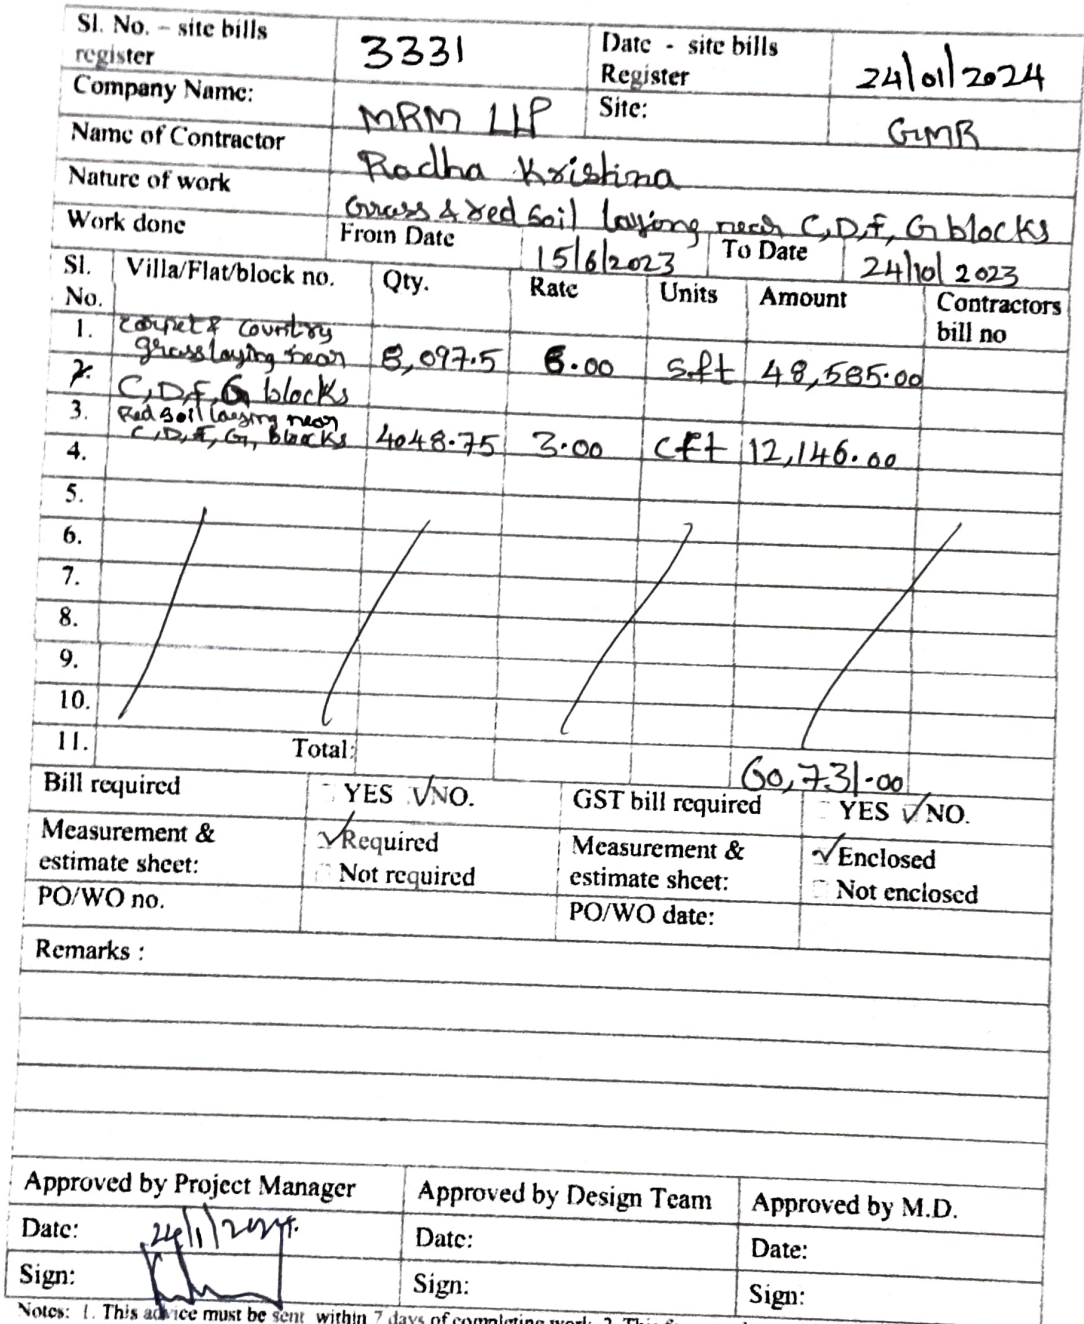 Sl. No. – site bills register 3331 Date - site bills Register 24/01/2024
Company Name: MRM LLP Site: GMR
Name of Contractor Radha Krishna
Nature of work Grass & red soil laying near C, D, F, G blocks
Work done From Date 15/6/2023 To Date 24/10/2023
Sl. No. Villa/Flat/block no. Qty. Rate Units Amount Contractors bill no
1. Carpet & country
grass laying near 8,097.5 6.00 sft 48,585.00
2. C, D, F, G blocks
3. Red soil laying near
C, D, F, G, blocks 4048.75 3.00 cft 12,146.00
4.
5.
6.
7.
8.
9.
10.
11. Total: 60,731.00
Bill required YES NO. GST bill required YES NO.
Measurement & estimate sheet: Required Not required Measurement & estimate sheet: Enclosed Not enclosed
PO/WO no. PO/WO date:
Remarks :
Approved by Project Manager Approved by Design Team Approved by M.D.
Date: 24/1/2024. Date: Date:
Sign: Sign: Sign:
Notes: 1. This advice must be sent within 7 days of completing work. 2. This